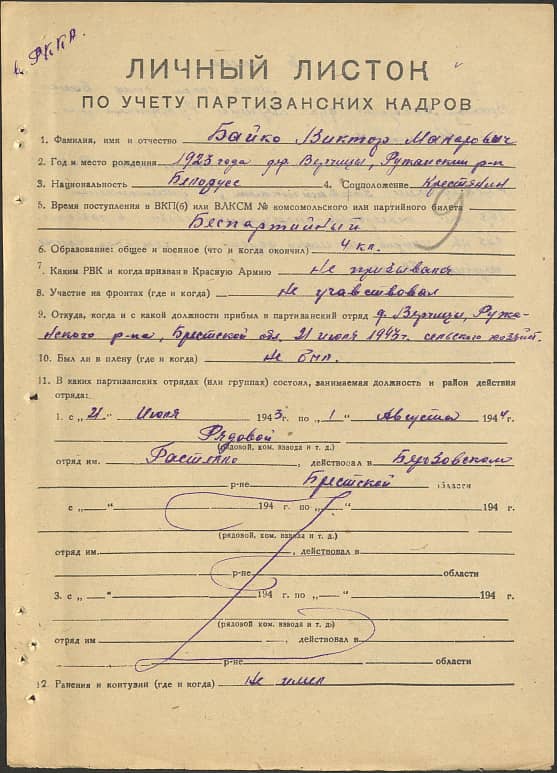 в РККА.
ЛИЧНЫЙ ЛИСТОК
ПО УЧЕТУ ПАРТИЗАНСКИХ КАДРОВ
1. Фамилия, имя и отчество Байко Виктор Макарович
2. Год и место рождения 1923 года дер Верчицы, Ружанский р-н
3. Национальность Белорус 4. Соцположение Крестянин
5. Время поступления в ВКП(б) или ВЛКСМ № комсомольского или партийного билета
Беспартийный
9
6. Образование: общее и военное (что и когда окончил) 4 кл.
7. Каким РВК и когда призван в Красную Армию Не призывался
8. Участие на фронтах (где и когда) Не учавствовал
9. Откуда, когда и с какой должности прибыл в партизанский отряд д. Верчицы, Ружа-
нского р-на, Брестской обл. 21 июля 1943г. сельского хозяйст.
10. Был ли в плену (где и когда) Не был.
11. В каких партизанских отрядах (или группах) состоял, занимаемая должность и район действия
отряда:
1. с „21" Июля 1943 г. по „1" Августа 1944 г.
Рядовой
(рядовой, ком. взвода и т. д.)
отряд им. , действовал в Берёзовском
р-не Брестской области
с „ " 194 г. по „ " 194 г.
(рядовой, ком. взвода и т. д.)
отряд им. , действовал в
р-не области
3. с „ " 194 г. по „ " 194 г.
(рядовой ком. взвода и т. д.)
отряд им , действовал в
р-не области
12. Ранения и контузии (где и когда) Не имел